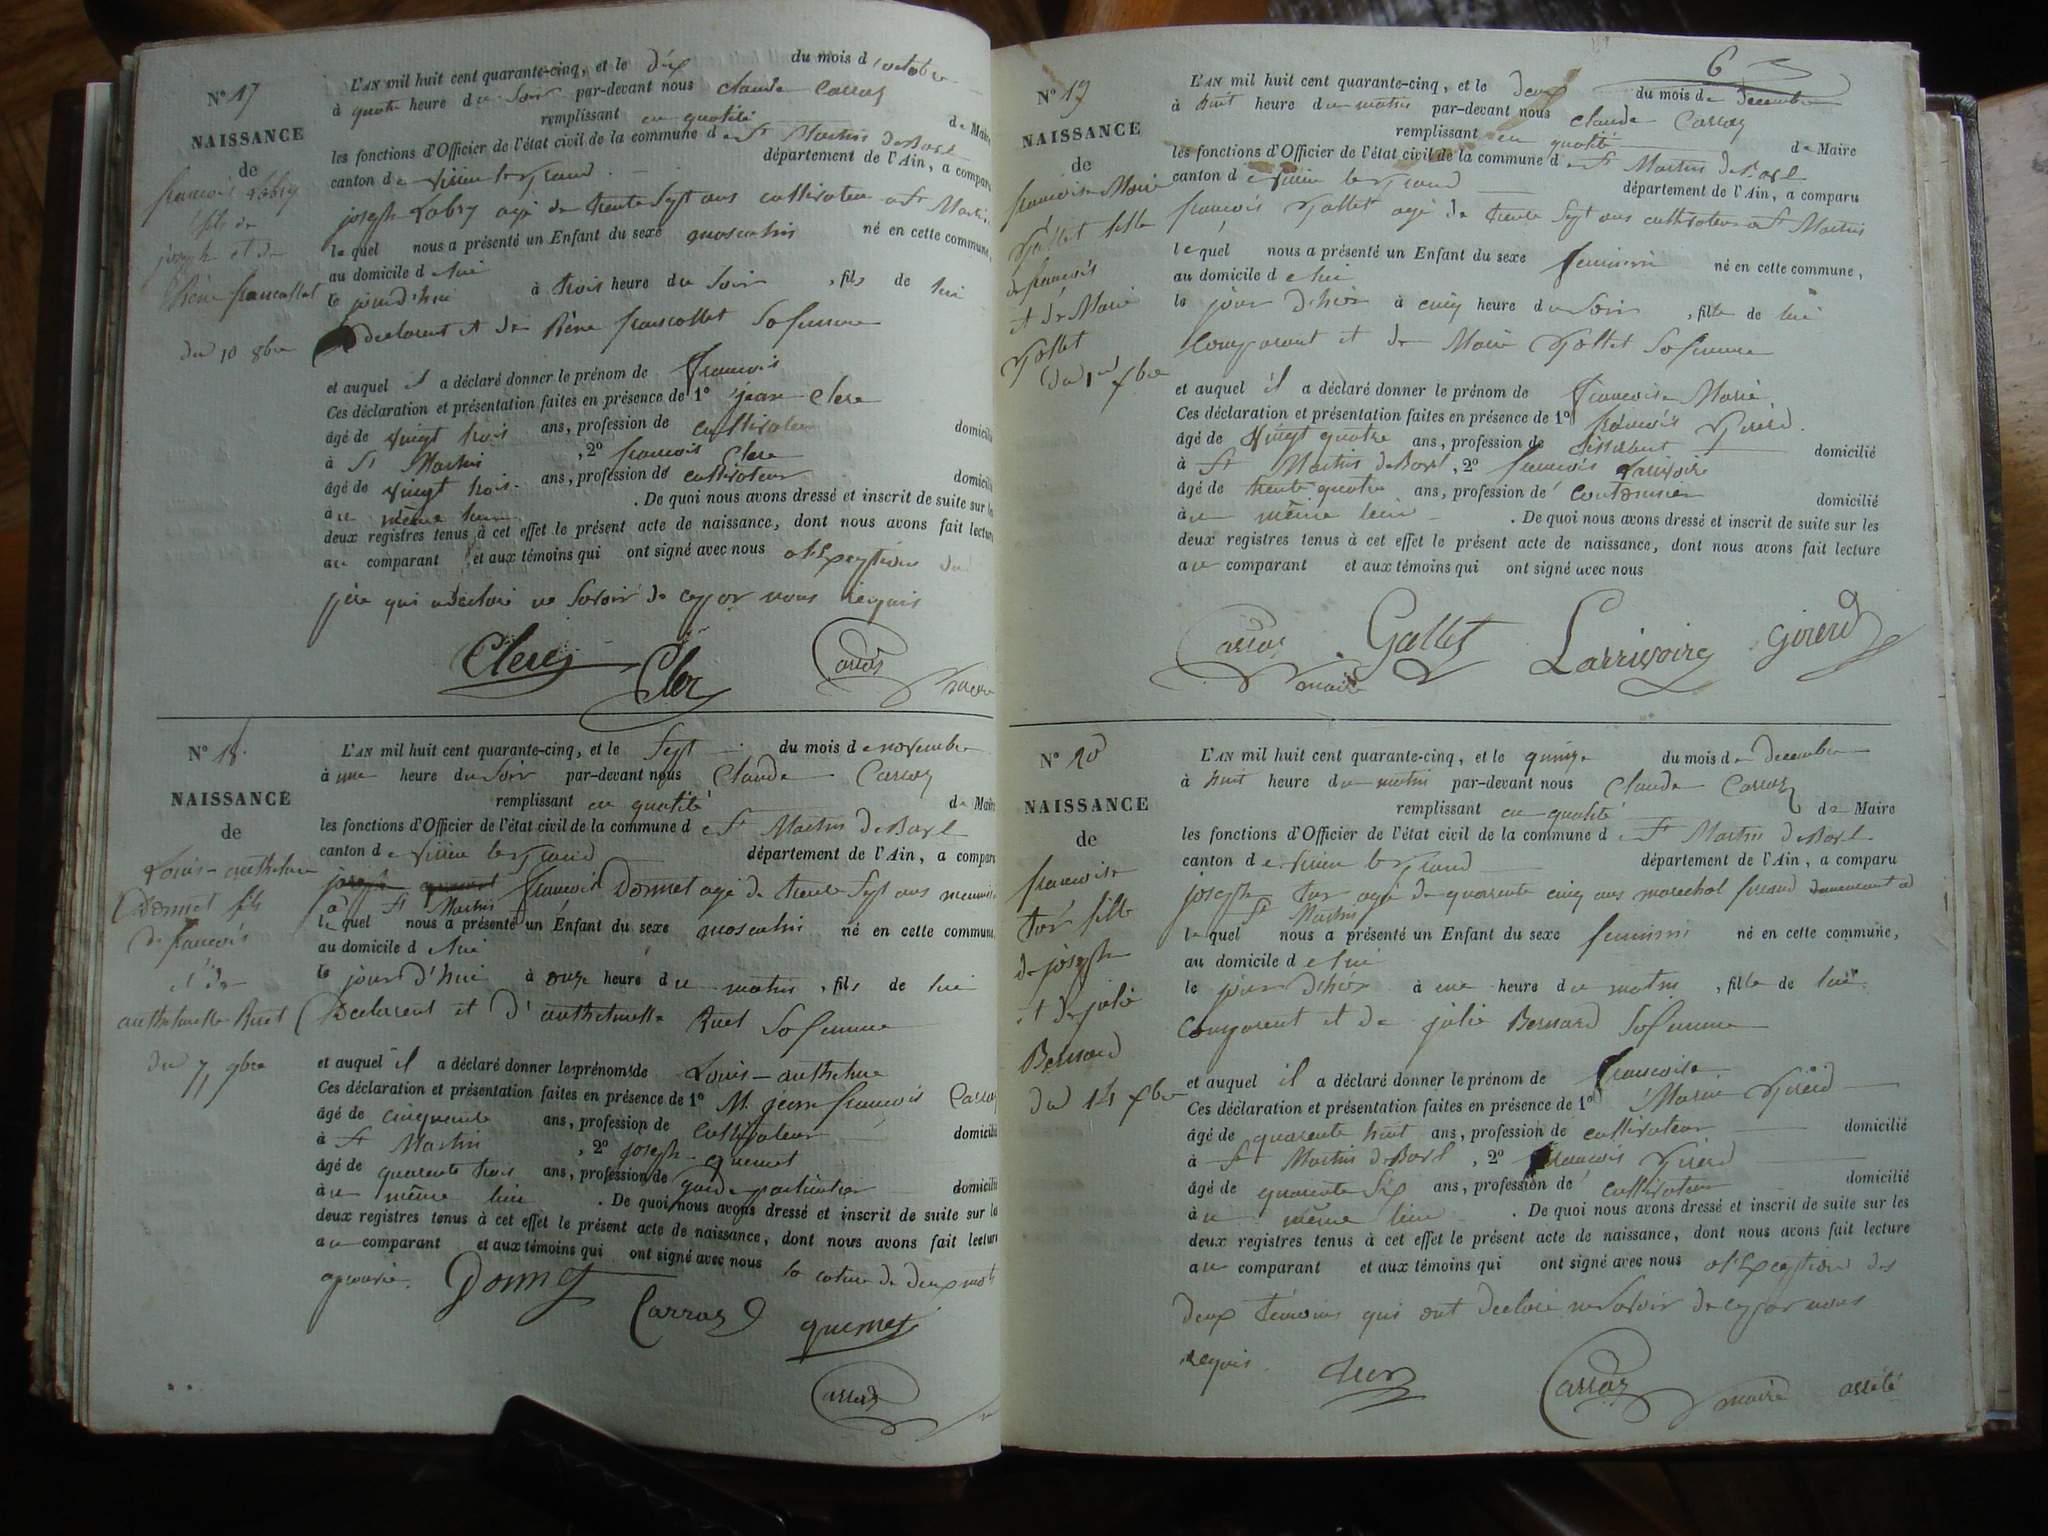 N° 17
NAISSANCE
de
françois Labry
fils de
joseph et de
françollet
du 10 8bre
L'AN mil huit cent quarante-cinq, et le dix du mois d'octobre
à quatre heure du soir par-devant nous claude Carraz
remplissant en qualité de Maire
les fonctions d'Officier de l'état civil de la commune de St Martin de Bavel
canton de virieu le grand département de l'Ain, a comparu
joseph Labry agé de trente sept ans cultivateur a St Martin
lequel nous a présenté un Enfant du sexe masculin né en cette commune,
au domicile de lui
le jourd'hui à trois heure du soir, fils de lui
declarant et de françollet sa femme
et auquel il a déclaré donner le prénom de françois
Ces déclaration et présentation faites en présence de 1° jean Clerc
âgé de vingt trois ans, profession de cultivateur domicilié
à St Martin, 2° françois Clerc
âgé de vingt trois ans, profession de cultivateur domicilié
au même lieu. De quoi nous avons dressé et inscrit de suite sur les
deux registres tenus à cet effet le présent acte de naissance, dont nous avons fait lecture
au comparant et aux témoins qui ont signé avec nous a l'exception du
père qui a declaré ne savoir de ce par nous requis
Clerc Clerc Carraz maire
N° 18
NAISSANCE
de
Louis-anthelme
Donnet fils
de françois
et de
anthelmette Ruet
du 7 9bre
L'AN mil huit cent quarante-cinq, et le sept du mois de novembre
à une heure du soir par-devant nous Claude Carraz
remplissant en qualité de Maire
les fonctions d'Officier de l'état civil de la commune de St Martin de Bavel
canton de virieu le grand département de l'Ain, a comparu
françois Donnet agé de trente sept ans
à St Martin
lequel nous a présenté un Enfant du sexe masculin né en cette commune,
au domicile de lui
le jour d'hui à onze heure du matin, fils de lui
Declarant et d'anthelmette Ruet sa femme
et auquel il a déclaré donner les prénoms de Louis-anthelme
Ces déclaration et présentation faites en présence de 1° M. jean françois Carraz
âgé de cinquante ans, profession de cultivateur domicilié
à St Martin, 2° joseph quemet
âgé de quarante trois ans, profession de garde particulier domicilié
au même lieu. De quoi nous avons dressé et inscrit de suite sur les
deux registres tenus à cet effet le présent acte de naissance, dont nous avons fait lecture
au comparant et aux témoins qui ont signé avec nous la rature de deux mots
approuvée. Donnet
Carraz quemet
Carraz
6
N° 19
NAISSANCE
de
françoise Marie
Gallet fille
de françois
et de Marie
Gallet
du 1er Xbre
L'AN mil huit cent quarante-cinq, et le deux du mois de decembre
à huit heure du matin par-devant nous claude Carraz
remplissant en qualité de Maire
les fonctions d'Officier de l'état civil de la commune de St Martin de Bavel
canton de virieu le grand département de l'Ain, a comparu
françois Gallet agé de trente sept ans cultivateur a St Martin
lequel nous a présenté un Enfant du sexe feminin né en cette commune,
au domicile de lui
le jour d'hier à cinq heure du soir, fille de lui
Comparant et de Marie Gallet sa femme
et auquel il a déclaré donner le prénom de françoise Marie
Ces déclaration et présentation faites en présence de 1° françois Girerd
âgé de vingt quatre ans, profession de tisserant domicilié
à St Martin de Bavel, 2° françois Larrivoire
âgé de trente quatre ans, profession de cordonnier domicilié
au même lieu. De quoi nous avons dressé et inscrit de suite sur les
deux registres tenus à cet effet le présent acte de naissance, dont nous avons fait lecture
au comparant et aux témoins qui ont signé avec nous
Carraz maire Gallet Larrivoire Girerd
N° 20
NAISSANCE
de
françoise
fille
de joseph
et de julie
Bernard
du 14 Xbre
L'AN mil huit cent quarante-cinq, et le quinze du mois de decembre
à huit heure du matin par-devant nous Claude Carraz
remplissant en qualité de Maire
les fonctions d'Officier de l'état civil de la commune de St Martin de Bavel
canton de virieu le grand département de l'Ain, a comparu
joseph agé de quarante cinq ans marechal ferrand demeurant a
St Martin
lequel nous a présenté un Enfant du sexe feminin né en cette commune,
au domicile de lui
le jour d'hier à une heure du matin, fille de lui
Comparent et de julie Bernard sa femme
et auquel il a déclaré donner le prénom de françoise
Ces déclaration et présentation faites en présence de 1° Marin Girerd
âgé de quarante huit ans, profession de cultivateur domicilié
à St Martin de Bavel, 2° françois Girerd
âgé de quarante six ans, profession de cultivateur domicilié
au même lieu. De quoi nous avons dressé et inscrit de suite sur les
deux registres tenus à cet effet le présent acte de naissance, dont nous avons fait lecture
au comparant et aux témoins qui ont signé avec nous a l'exception des
deux témoins qui ont declaré ne savoir de ce par nous
requis. Carraz maire